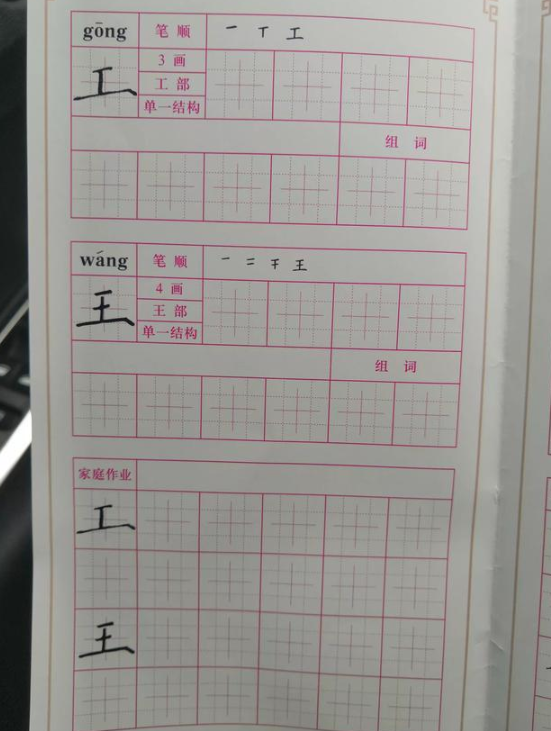 gōng 笔顺 一 丅 工
工 3画
工部
单一结构
组词
wáng 笔顺 一 二 干 王
王 4画
王部
单一结构
组词
家庭作业
工
王